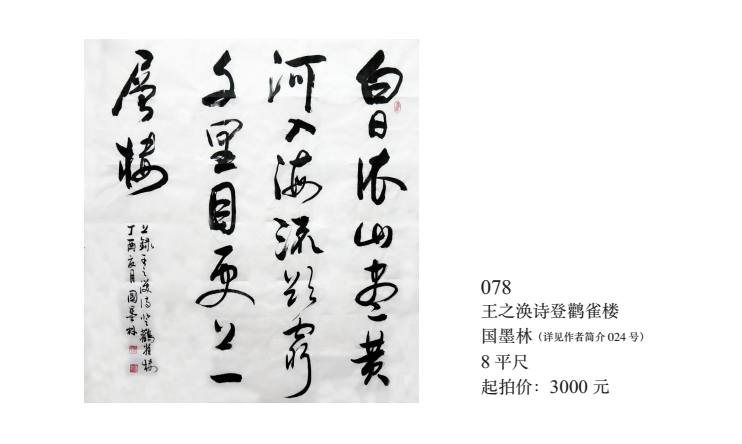 白日依山盡黄
河入海流欲窮
千里目更上一
層樓
上録王之渙詩登鸛雀樓
丁酉 月國墨林
078
王之涣诗登鹳雀楼
国墨林（详见作者简介 024 号）
8 平尺
起拍价：3000 元